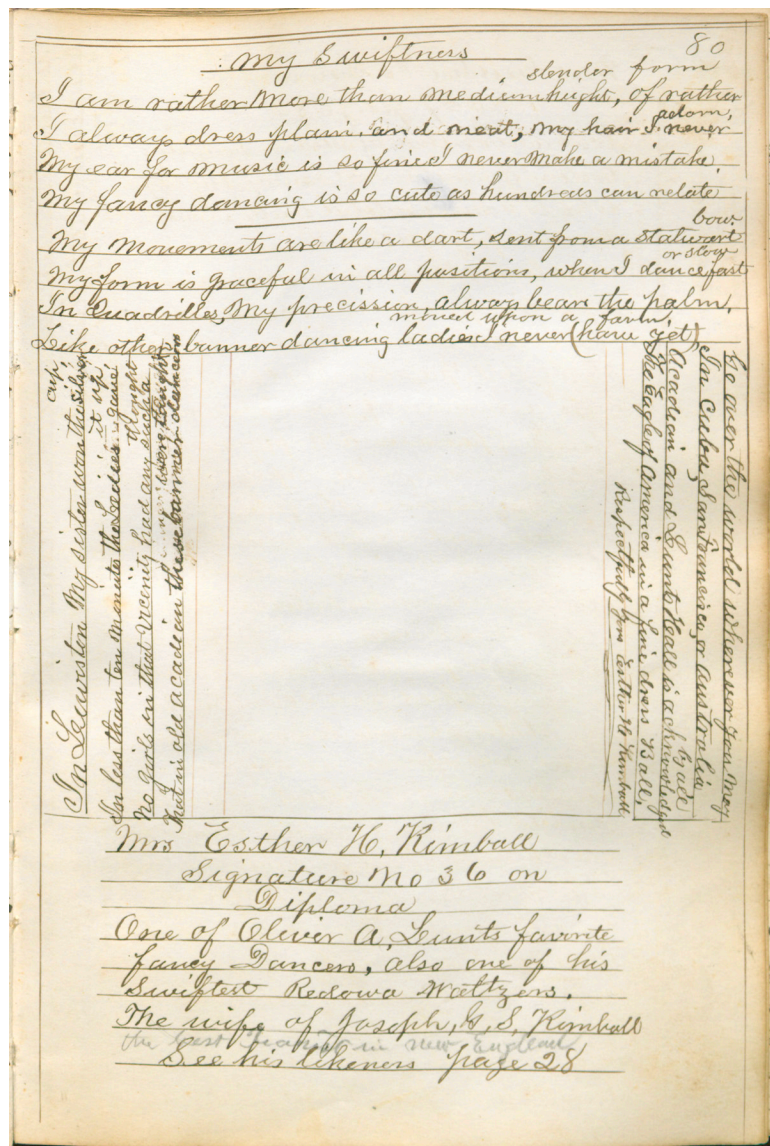 80
My Swiftness
I am rather more than medium height, of rather slender form
I always dress plain, and neat, my hair I never adorn,
My ear for music is so fine I never make a mistake
My fancy dancing is so cute as hundreds can relate
My movements are like a dart, sent from a stalwart bow.
My form is graceful in all positions, when I dance fast or slow
In Quadrilles, My precission, always bears the palm.
Like other banner dancing ladies I never (have yet) moved upon a farm.
In Lewiston My sister won the silver cup,
In less than ten minute the Ladies gave it up
No girls in that vicinity had any such a thought
That in old acadian these banner dancers were taught
Go over the world wherever you may
In Cuba, San Francisco, or Australia
Acadian and Lunts Hall is acknowledged by all
The Eagle of America in a fine dress Ball.
Respectfully yours Esther H Kimball
Mrs Esther H. Kimball
Signature No 36 on
Diploma
One of Oliver A. Lunts favorite
fancy Dancers, also one of his
Swiftest Redowa Waltzers.
The wife of Joseph, G. S. Kimball
the best in new England
See his likeness page 28